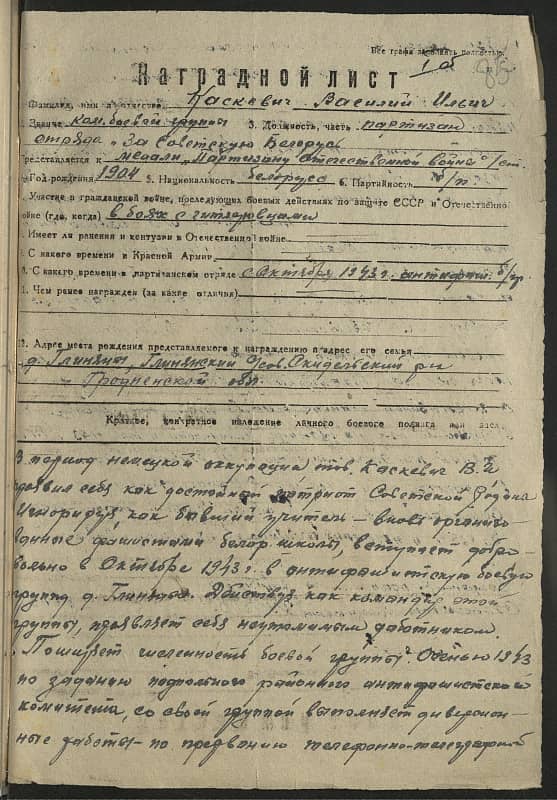 Все графы заполнять полностью.
1 об
85
Наградной лист
1. Фамилия, имя и отчество Каскевич Василий Ильич
2. Звание ком. боевой группы 3. Должность, часть партизан
отряда "За Советскую Белорусь
Представляется к медали "Партизану Отечественной войны" ст.
Год рождения 1904 5. Национальность белорус 6. Партийность б/п.
Участие в гражданской войне, последующих боевых действиях по защите СССР и Отечественной
войне (где, когда) в боях с гитлеровцами
Имеет ли ранения и контузии в Отечественной войне
С какого времени в Красной Армии
С какого времени в партизанском отряде с Октября 1943 г. антифаш. б/гр.
Чем ранее награжден (за какие отличия)
12. Адрес места рождения представляемого к награждению и адрес его семьи
д. Глиняны, Глинянский с/сов. Скидельский р-н
Гродненской обл.
Краткое, конкретное изложение личного боевого подвига или заслуг
В период немецкой оккупации тов. Каскевич В. И
проявил себя как достойный патриот Советской Родины
Игнорируя, как бывший учитель – вновь организо-
ванные фашистами белор. школы, вступает добро-
вольно в Октябре 1943 г. в антифашистскую боевую
группу д. Глиняны. Действуя как командир этой
группы, проявляет себя неутомимым работником.
Ширит численность боевой группы. Осенью 1943
по заданию подпольного районного антифашистского
комитета, со своей группой выполняет диверсион-
ные работы – по прерванию телефонно-телеграфной